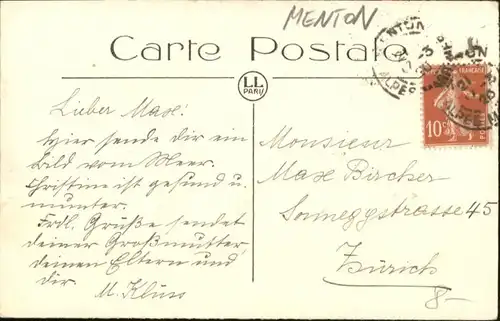 MENTON
Carte Postale
LL
PARIS
Lieber Max!
Hier sende dir ein
Bild vom Meer.
Christine ist gesund u.
munter.
Frdl. Grüße sendet
deiner Großmutter,
deinen Eltern und
dir
M. Kluss
Monsieur
Max Bircher
Sonneggstrasse 45
Zürich
8-
10